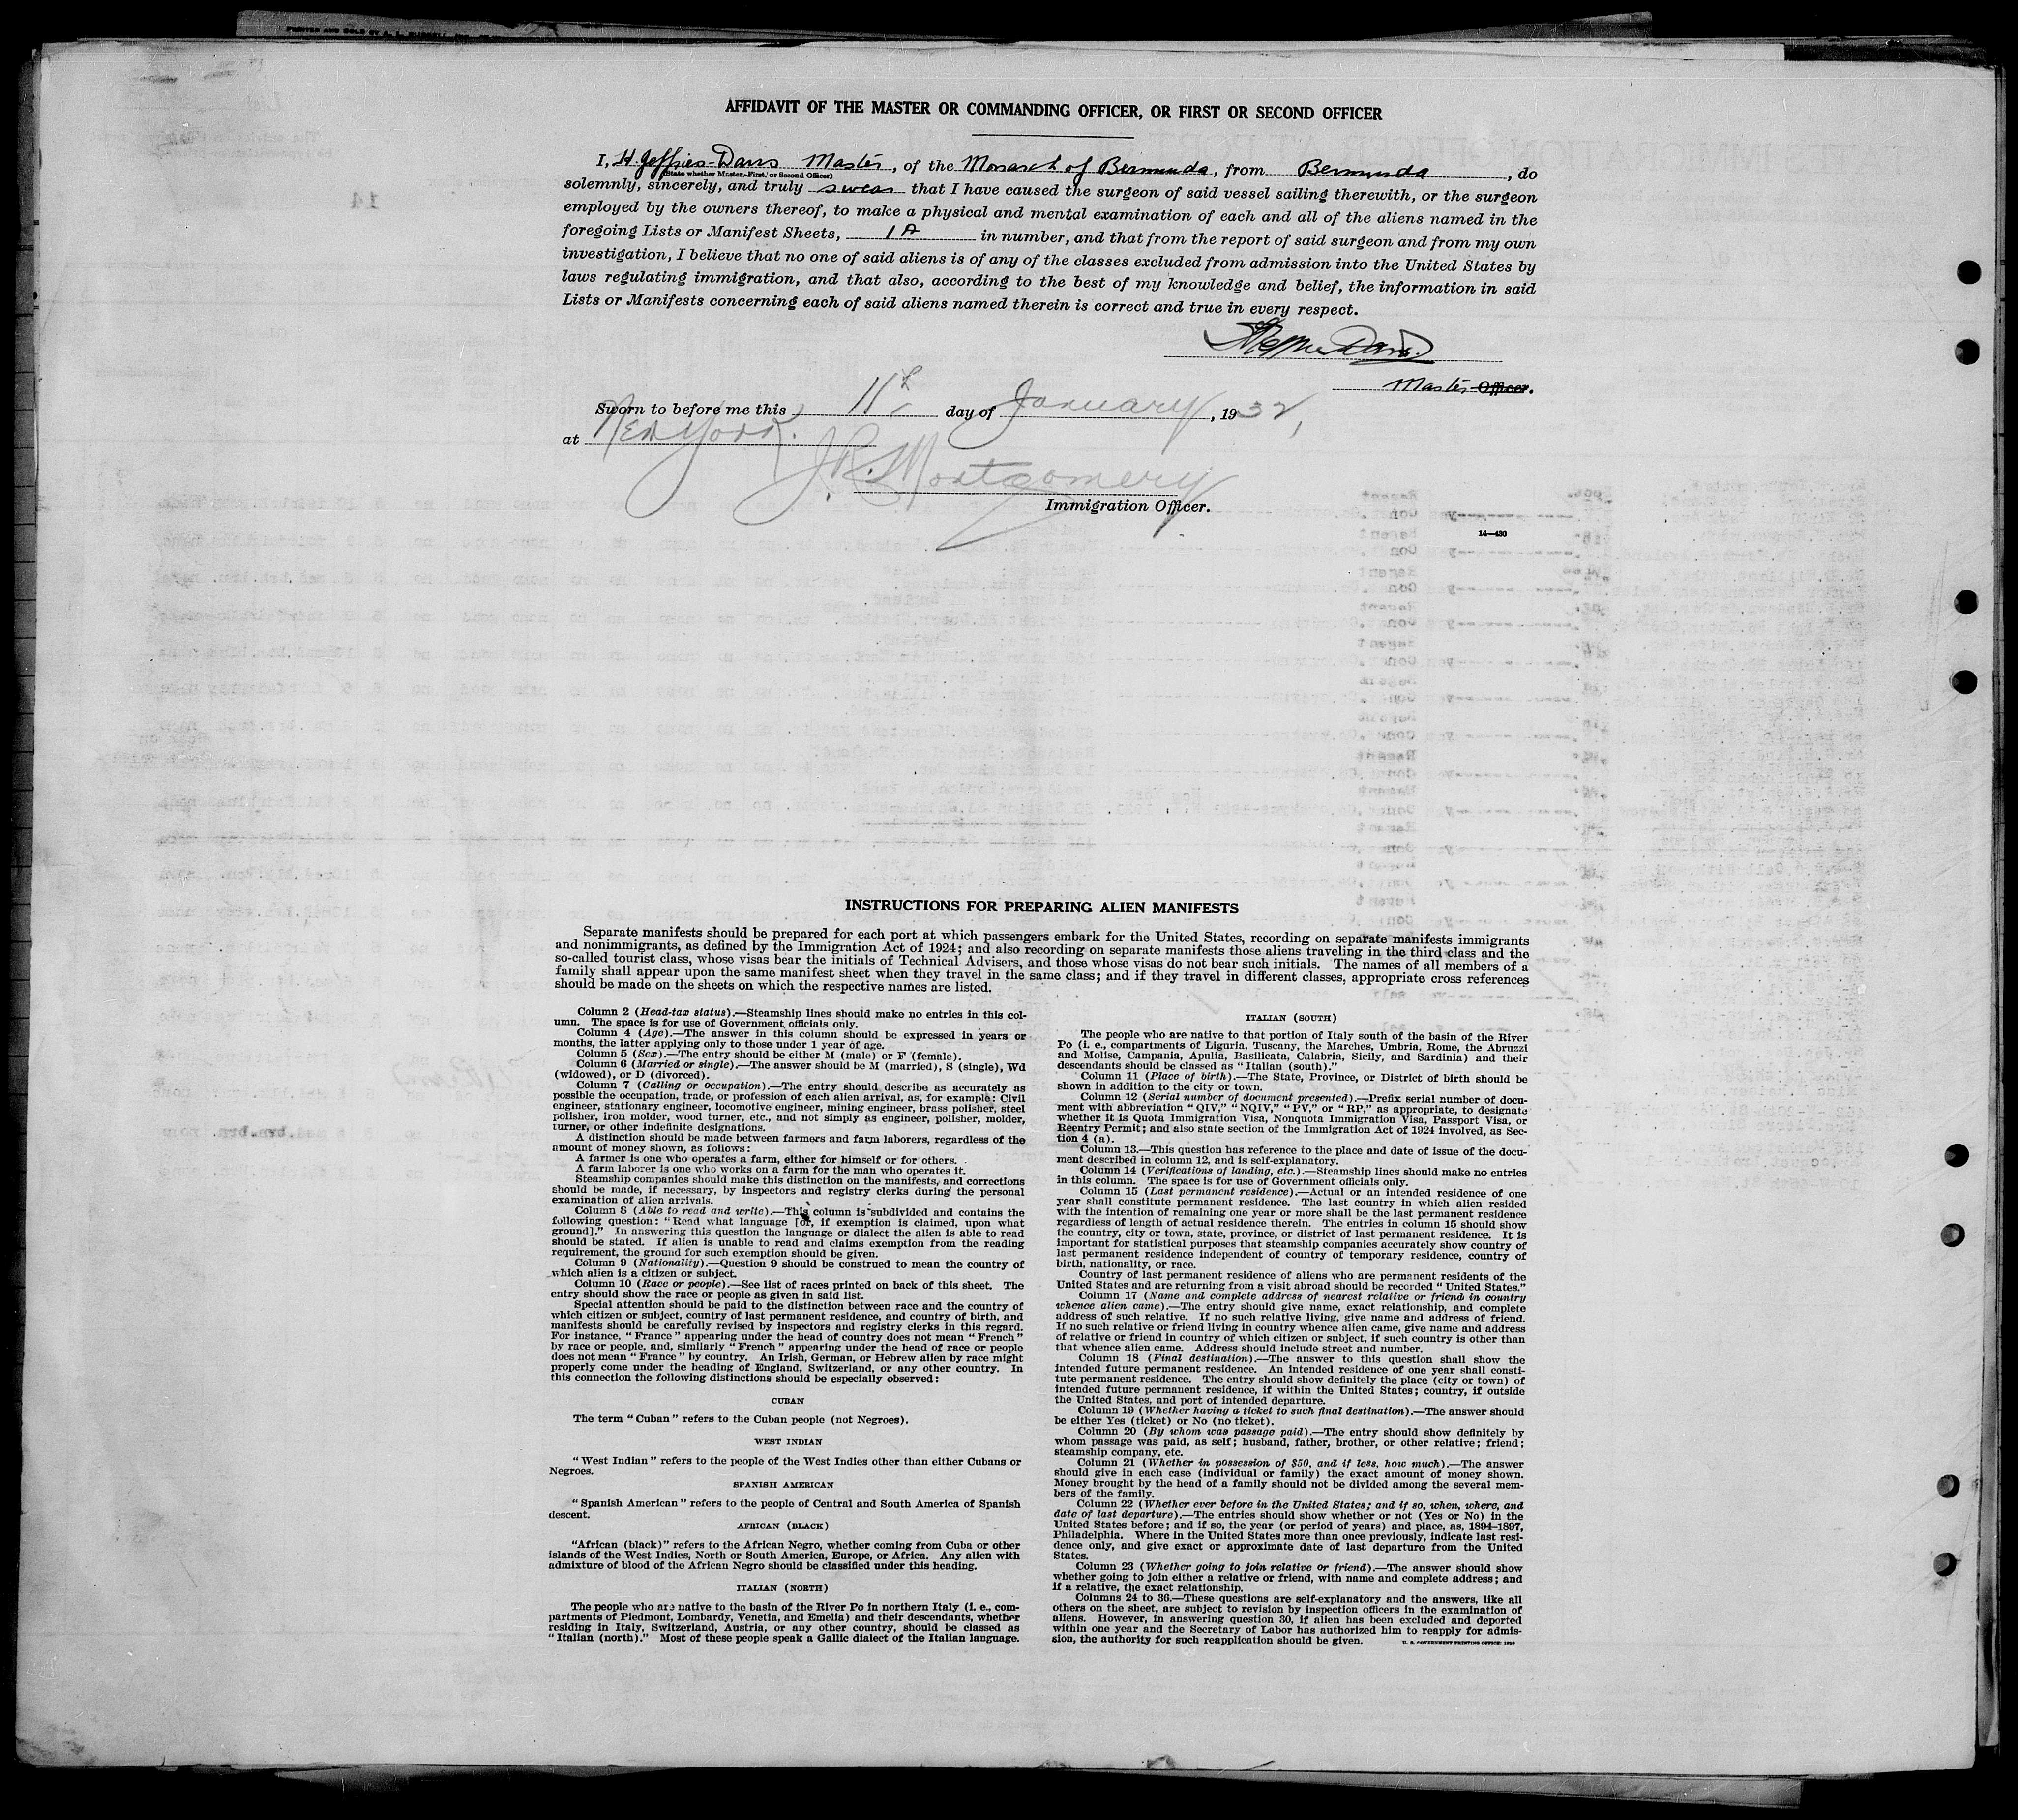 AFFIDAVIT OF THE MASTER OR COMMANDING OFFICER, OR FIRST OR SECOND OFFICER
I, H. Jeffries-Davis Master, of the Monarch of Bermuda, from Bermuda, do
(State whether Master, First, or Second Officer)
solemnly, sincerely, and truly swear that I have caused the surgeon of said vessel sailing therewith, or the surgeon
employed by the owners thereof, to make a physical and mental examination of each and all of the aliens named in the
foregoing Lists or Manifest Sheets, 1A in number, and that from the report of said surgeon and from my own
investigation, I believe that no one of said aliens is of any of the classes excluded from admission into the United States by
laws regulating immigration, and that also, according to the best of my knowledge and belief, the information in said
Lists or Manifests concerning each of said aliens named therein is correct and true in every respect.
Master Officer.
Sworn to before me this 11th day of January, 1932,
at New York.
J.R. Montgomery
Immigration Officer.
14—430
INSTRUCTIONS FOR PREPARING ALIEN MANIFESTS
Separate manifests should be prepared for each port at which passengers embark for the United States, recording on separate manifests immigrants
and nonimmigrants, as defined by the Immigration Act of 1924; and also recording on separate manifests those aliens traveling in the third class and the
so-called tourist class, whose visas bear the initials of Technical Advisers, and those whose visas do not bear such initials. The names of all members of a
family shall appear upon the same manifest sheet when they travel in the same class; and if they travel in different classes, appropriate cross references
should be made on the sheets on which the respective names are listed.
Column 2 (Head-tax status).—Steamship lines should make no entries in this col-
umn. The space is for use of Government officials only.
Column 4 (Age).—The answer in this column should be expressed in years or
months, the latter applying only to those under 1 year of age.
Column 5 (Sex).—The entry should be either M (male) or F (female).
Column 6 (Married or single).—The answer should be M (married), S (single), Wd
(widowed), or D (divorced).
Column 7 (Calling or occupation).—The entry should describe as accurately as
possible the occupation, trade, or profession of each alien arrival, as, for example: Civil
engineer, stationary engineer, locomotive engineer, mining engineer, brass polisher, steel
polisher, iron molder, wood turner, etc., and not simply as engineer, polisher, molder,
turner, or other indefinite designations.
A distinction should be made between farmers and farm laborers, regardless of the
amount of money shown, as follows:
A farmer is one who operates a farm, either for himself or for others.
A farm laborer is one who works on a farm for the man who operates it.
Steamship companies should make this distinction on the manifests, and corrections
should be made, if necessary, by inspectors and registry clerks during the personal
examination of alien arrivals.
Column 8 (Able to read and write).—This column is subdivided and contains the
following question: "Read what language [or, if exemption is claimed, upon what
ground]." In answering this question the language or dialect the alien is able to read
should be stated. If alien is unable to read and claims exemption from the reading
requirement, the ground for such exemption should be given.
Column 9 (Nationality).—Question 9 should be construed to mean the country of
which alien is a citizen or subject.
Column 10 (Race or people).—See list of races printed on back of this sheet. The
entry should show the race or people as given in said list.
Special attention should be paid to the distinction between race and the country of
which citizen or subject, country of last permanent residence, and country of birth, and
manifests should be carefully revised by inspectors and registry clerks in this regard.
For instance, "France" appearing under the head of country does not mean "French"
by race or people, and, similarly "French" appearing under the head of race or people
does not mean "France" by country. An Irish, German, or Hebrew alien by race might
properly come under the heading of England, Switzerland, or any other country. In
this connection the following distinctions should be especially observed:
CUBAN
The term "Cuban" refers to the Cuban people (not Negroes).
WEST INDIAN
"West Indian" refers to the people of the West Indies other than either Cubans or
Negroes.
SPANISH AMERICAN
"Spanish American" refers to the people of Central and South America of Spanish
descent.
AFRICAN (BLACK)
"African (black)" refers to the African Negro, whether coming from Cuba or other
islands of the West Indies, North or South America, Europe, or Africa. Any alien with
admixture of blood of the African Negro should be classified under this heading.
ITALIAN (NORTH)
The people who are native to the basin of the River Po in northern Italy (i. e., com-
partments of Piedmont, Lombardy, Venetia, and Emelia) and their descendants, whether
residing in Italy, Switzerland, Austria, or any other country, should be classed as
"Italian (north)." Most of these people speak a Gallic dialect of the Italian language.
ITALIAN (SOUTH)
The people who are native to that portion of Italy south of the basin of the River
Po (i. e., compartments of Liguria, Tuscany, the Marches, Umbria, Rome, the Abruzzi
and Molise, Campania, Apulia, Basilicata, Calabria, Sicily, and Sardinia) and their
descendants should be classed as "Italian (south)."
Column 11 (Place of birth).—The State, Province, or District of birth should be
shown in addition to the city or town.
Column 12 (Serial number of document presented).—Prefix serial number of docu-
ment with abbreviation "QIV," "NQIV," "PV," or "RP," as appropriate, to designate
whether it is Quota Immigration Visa, Nonquota Immigration Visa, Passport Visa, or
Reentry Permit; and also state section of the Immigration Act of 1924 involved, as Sec-
tion 4 (a).
Column 13.—This question has reference to the place and date of issue of the docu-
ment described in column 12, and is self-explanatory.
Column 14 (Verifications of landing, etc.).—Steamship lines should make no entries
in this column. The space is for use of Government officials only.
Column 15 (Last permanent residence).—Actual or an intended residence of one
year shall constitute permanent residence. The last country in which alien resided
with the intention of remaining one year or more shall be the last permanent residence
regardless of length of actual residence therein. The entries in column 15 should show
the country, city or town, state, province, or district of last permanent residence. It is
important for statistical purposes that steamship companies accurately show country of
last permanent residence independent of country of temporary residence, country of
birth, nationality, or race.
Country of last permanent residence of aliens who are permanent residents of the
United States and are returning from a visit abroad should be recorded "United States."
Column 17 (Name and complete address of nearest relative or friend in country
whence alien came).—The entry should give name, exact relationship, and complete
address of such relative. If no such relative living, give name and address of friend.
If no such relative or friend living in country whence alien came, give name and address
of relative or friend in country of which citizen or subject, if such country is other than
that whence alien came. Address should include street and number.
Column 18 (Final destination).—The answer to this question shall show the
intended future permanent residence. An intended residence of one year shall consti-
tute permanent residence. The entry should show definitely the place (city or town) of
intended future permanent residence, if within the United States; country, if outside
the United States, and port of intended departure.
Column 19 (Whether having a ticket to such final destination).—The answer should
be either Yes (ticket) or No (no ticket).
Column 20 (By whom was passage paid).—The entry should show definitely by
whom passage was paid, as self; husband, father, brother, or other relative; friend;
steamship company, etc.
Column 21 (Whether in possession of $50, and if less, how much).—The answer
should give in each case (individual or family) the exact amount of money shown.
Money brought by the head of a family should not be divided among the several mem-
bers of the family.
Column 22 (Whether ever before in the United States; and if so, when, where, and
date of last departure).—The entries should show whether or not (Yes or No) in the
United States before; and if so, the year (or period of years) and place, as, 1894–1897,
Philadelphia. Where in the United States more than once previously, indicate last resi-
dence only, and give exact or approximate date of last departure from the United
States.
Column 23 (Whether going to join relative or friend).—The answer should show
whether going to join either a relative or friend, with name and complete address; and
if a relative, the exact relationship.
Columns 24 to 36.—These questions are self-explanatory and the answers, like all
others on the sheet, are subject to revision by inspection officers in the examination of
aliens. However, in answering question 30, if alien has been excluded and deported
within one year and the Secretary of Labor has authorized him to reapply for admis-
sion, the authority for such reapplication should be given.
U. S. GOVERNMENT PRINTING OFFICE: